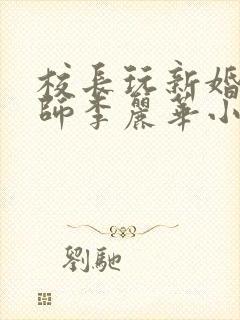 校長玩新婚
師李麗華小
劉馳